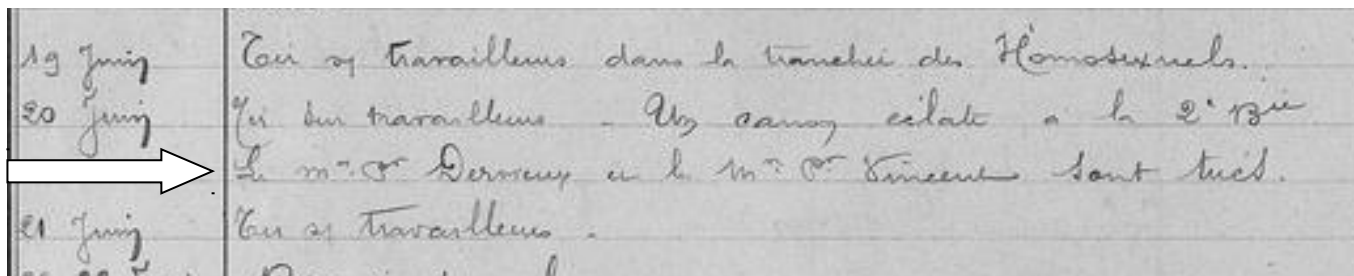 19 Juin Tir sr travailleurs dans la tranchée des Homosexuels.
20 Juin Tir sur travailleurs - Un canon éclate à la 2e Bie
Le Mal Dervieux et le Vincent sont tués.
21 Juin Tir sr travailleurs.